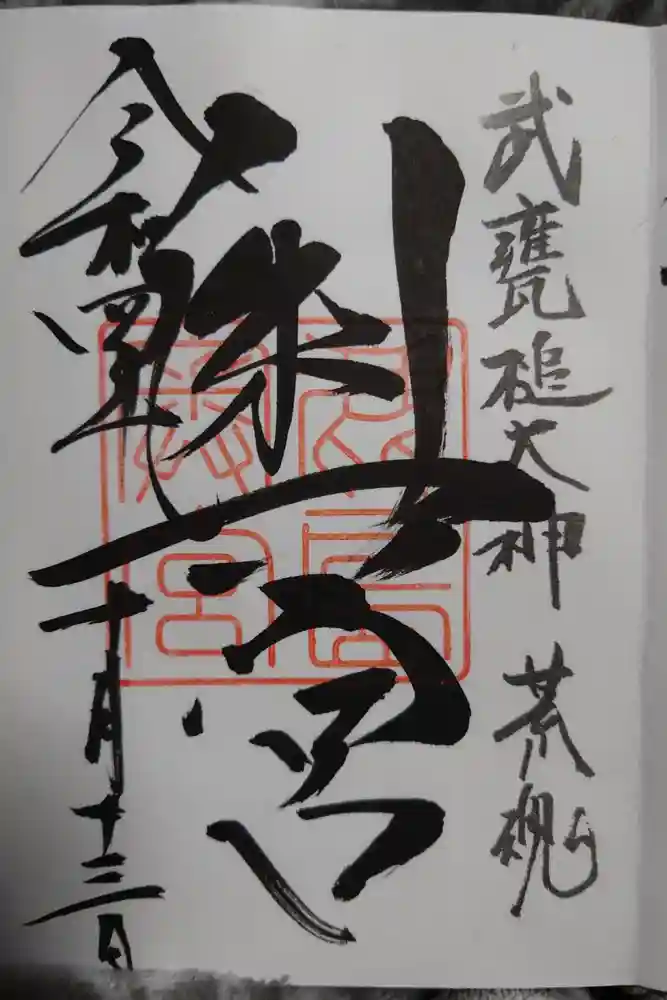 武甕槌大神 荒魂
奥宮
令和四年十月十三日